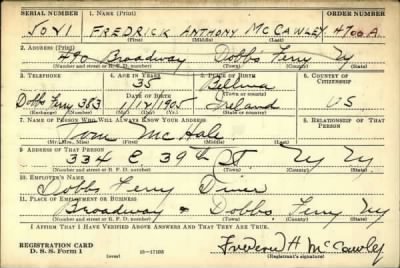 SERIAL NUMBER 1. NAME (Print) ORDER NUMBER
FREDRICK ANTHONY MC CAWLEY 4700 A
(First) (Middle) (Last)
2. ADDRESS (Print)
490 Broadway Dobbs Ferry NY
(Number and street or R. F. D. number) (Town) (County) (State)
3. TELEPHONE 4. AGE IN YEARS 5. PLACE OF BIRTH 6. COUNTRY OF CITIZENSHIP
35
DATE OF BIRTH (Town or county)
Dobbs Ferry 383 1/12/1905 Ireland US
(Exchange) (Number) (Mo.) (Day) (Yr.) (State or country)
7. NAME OF PERSON WHO WILL ALWAYS KNOW YOUR ADDRESS 8. RELATIONSHIP OF THAT PERSON
Tom Mc Hale
(Mr., Mrs., Miss) (First) (Middle) (Last)
9. ADDRESS OF THAT PERSON
334 E 39th St NY NY
(Number and street or R. F. D. number) (Town) (County) (State)
10. EMPLOYER'S NAME
Dobbs Ferry Diner
11. PLACE OF EMPLOYMENT OR BUSINESS
Broadway Dobbs Ferry NY
(Number and street or R. F. D. number) (Town) (County) (State)
I AFFIRM THAT I HAVE VERIFIED ABOVE ANSWERS AND THAT THEY ARE TRUE.
REGISTRATION CARD
D. S. S. Form 1 (over) McCawley
(Registrant's signature)